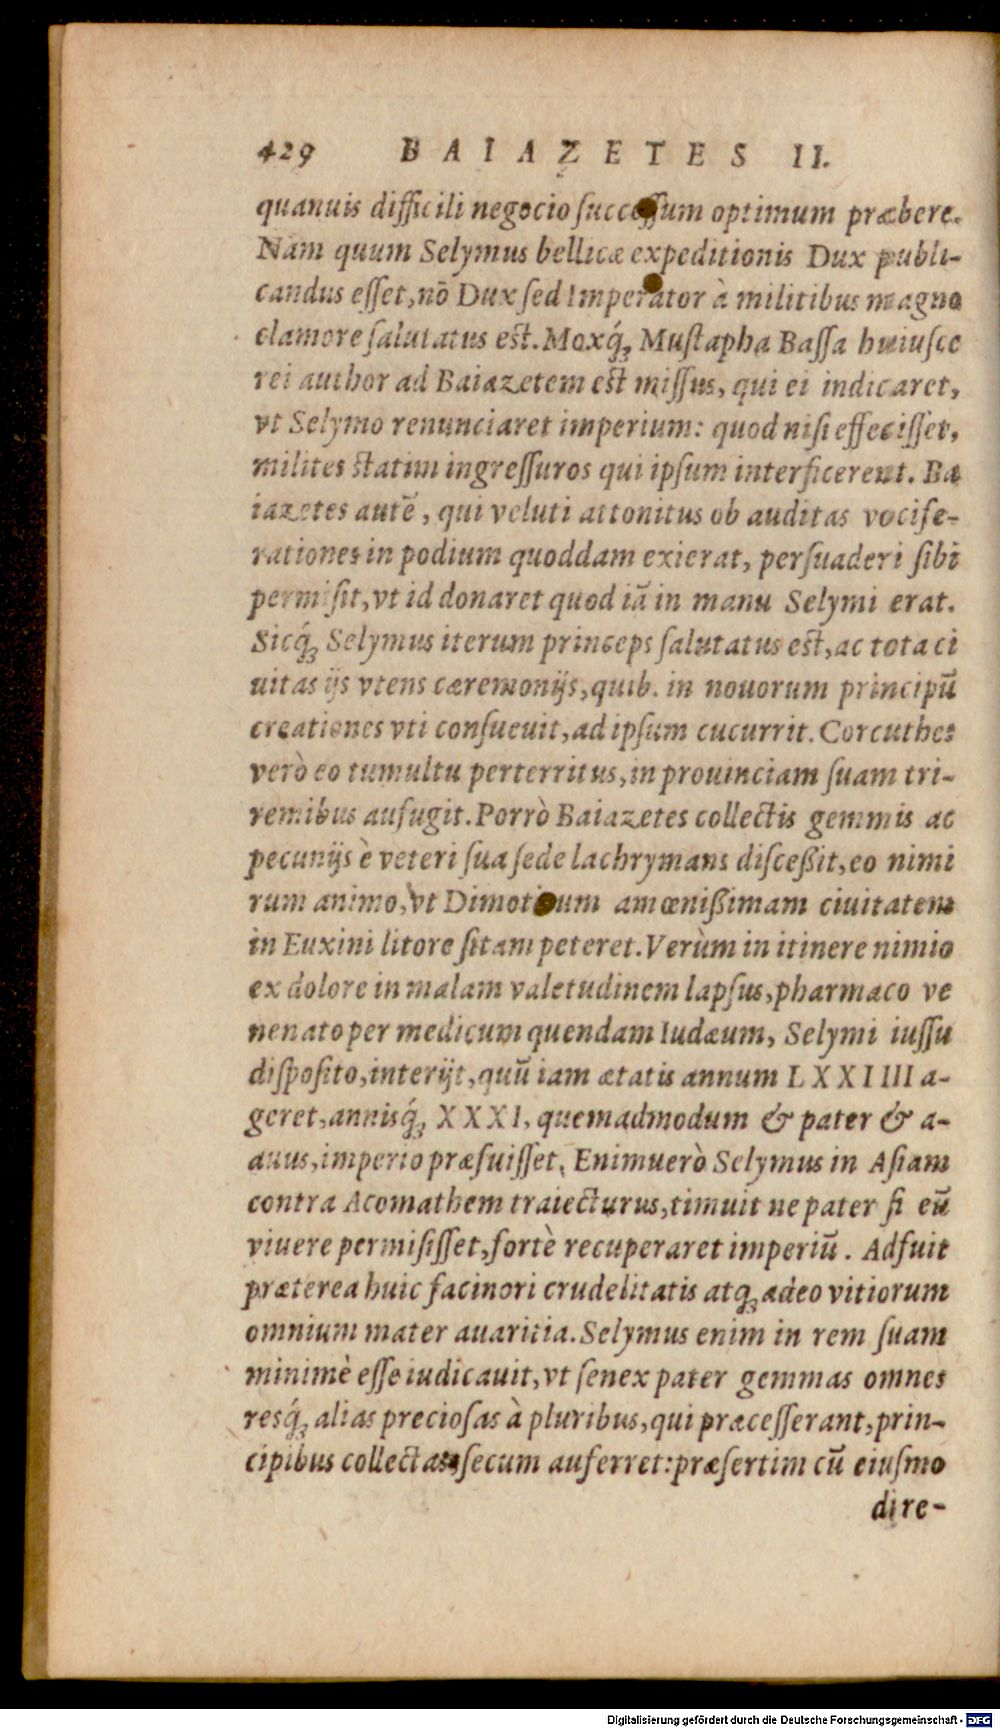 429 BAIAZETES II.
quanuis difficili negocio ſucceſſum optimum præbere.
Nam quum Selymus bellicæ expeditionis Dux publi-
candus eſſet, nō Dux ſed Imperator à militibus magno
clamore ſalutatus eſt. Moxq́ꝫ Muſtapha Baſſa huiuſce
rei author ad Baiazetem eſt miſſus, qui ei indicaret,
vt Selymo renunciaret imperium: quod niſi effeciſſet,
milites ſtatim ingreſſuros qui ipſum interficerent. Ba
iazetes autē, qui veluti attonitus ob auditas vocife-
rationes in podium quoddam exierat, perſuaderi ſibi
permiſit, vt id donaret quod iā in manu Selymi erat.
Sicq́ꝫ Selymus iterum princeps ſalutatus eſt, ac tota ci
uitas ijs vtens cæremonijs, quib. in nouorum principū
creationes vti conſueuit, ad ipſum cucurrit. Corcuthes
verò eo tumultu perterritus, in prouinciam ſuam tri-
remibus aufugit. Porrò Baiazetes collectis gemmis ac
pecunijs è veteri ſua ſede lachrymans diſceßit, eo nimi
rum animo, vt Dimoticum amœnißimam ciuitatem
in Euxini litore ſitam peteret. Verùm in itinere nimio
ex dolore in malam valetudinem lapſus, pharmaco ve
nenato per medicum quendam Iudæum, Selymi iuſſu
diſpoſito, interijt, quū iam ætatis annum LXXIIII a-
geret, annisq́ꝫ XXXI, quemadmodum & pater & a-
auus, imperio præfuiſſet. Enimuerò Selymus in Aſiam
contra Acomathem traiecturus, timuit ne pater ſi eū
viuere permiſiſſet, fortè recuperaret imperiū. Adfuit
præterea huic facinori crudelitatis atqꝫ adeo vitiorum
omnium mater auaritia. Selymus enim in rem ſuam
minimè eſſe iudicauit, vt ſenex pater gemmas omnes
resq́ꝫ alias precioſas à pluribus, qui præceſſerant, prin-
cipibus collectas ſecum auferret: præſertim cū eiuſmo
dire-
Digitalisierung gefördert durch die Deutsche Forschungsgemeinschaft - DFG